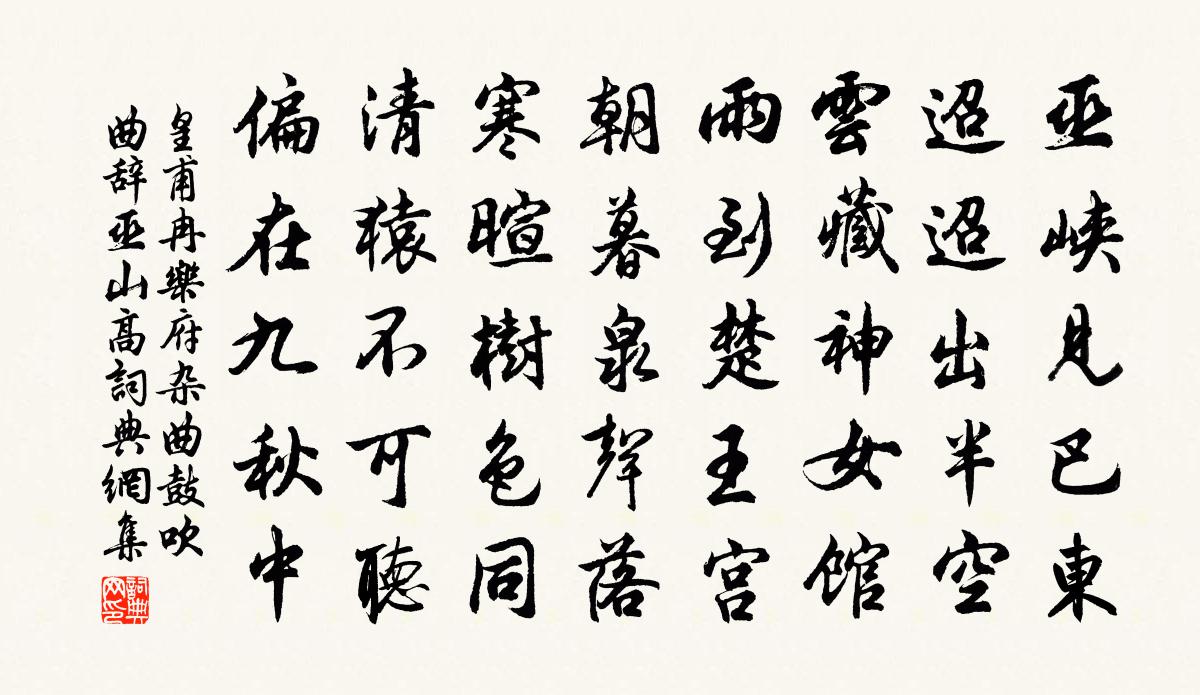 巫峽見巴東
迢迢出半空
雲藏神女館
雨到楚王宮
朝暮泉聲落
寒暄樹色同
清猿不可聽
偏在九秋中
皇甫冉樂府杂曲鼓吹
曲辞巫山高詞典網集
詞典网印